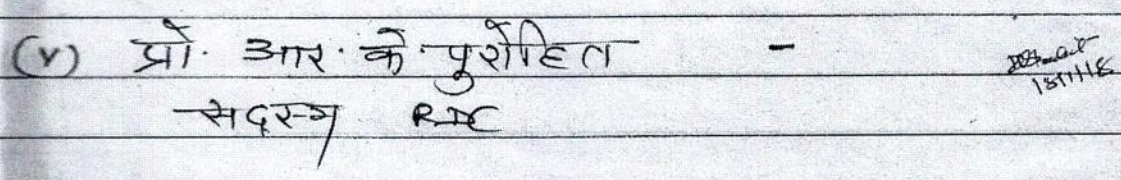 (v) प्रो. आर. के. पुरोहित -
18/1/18
सदस्य RDC